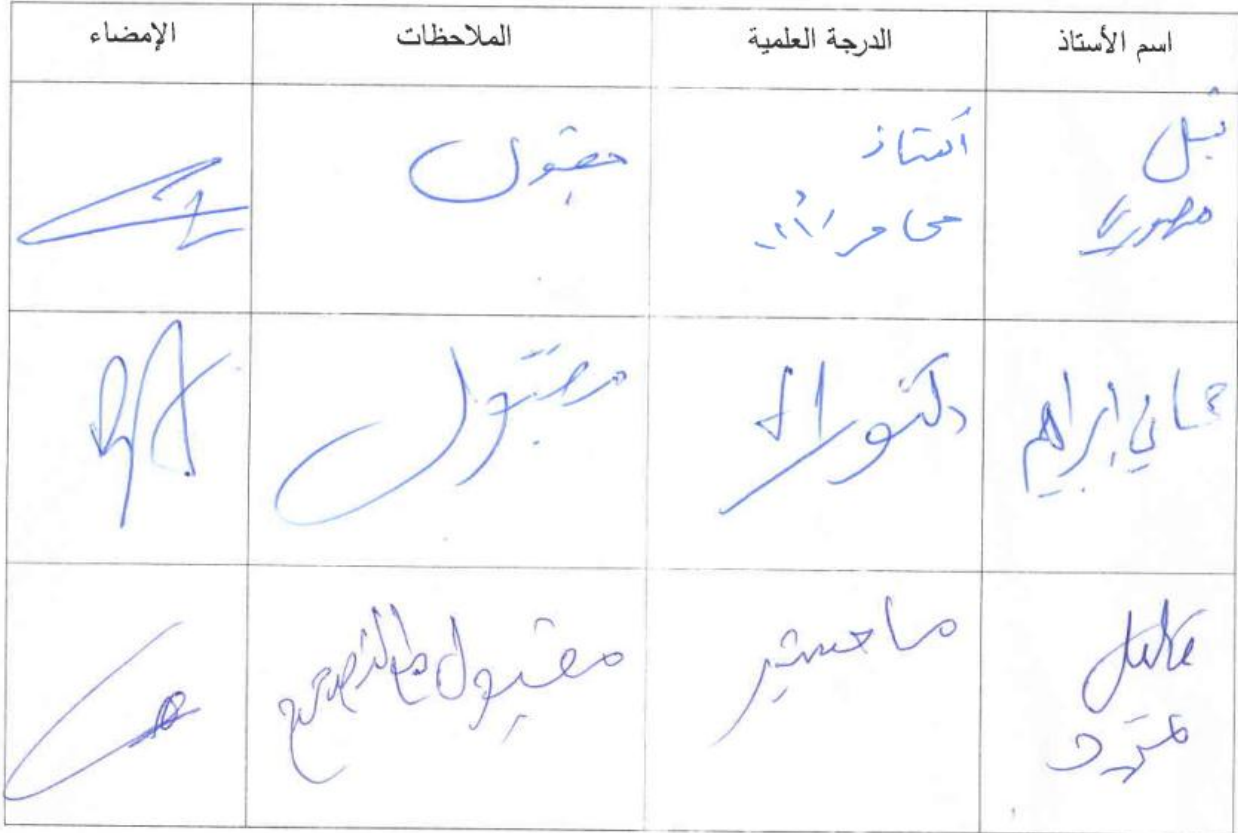 اسم الأستاذ الدرجة العلمية الملاحظات الإمضاء
نبيل أستاذ مقبول
منصوري محاضر
إبراهيم دكتوراه مقبول
ماجستير مقبول مع التصحيح